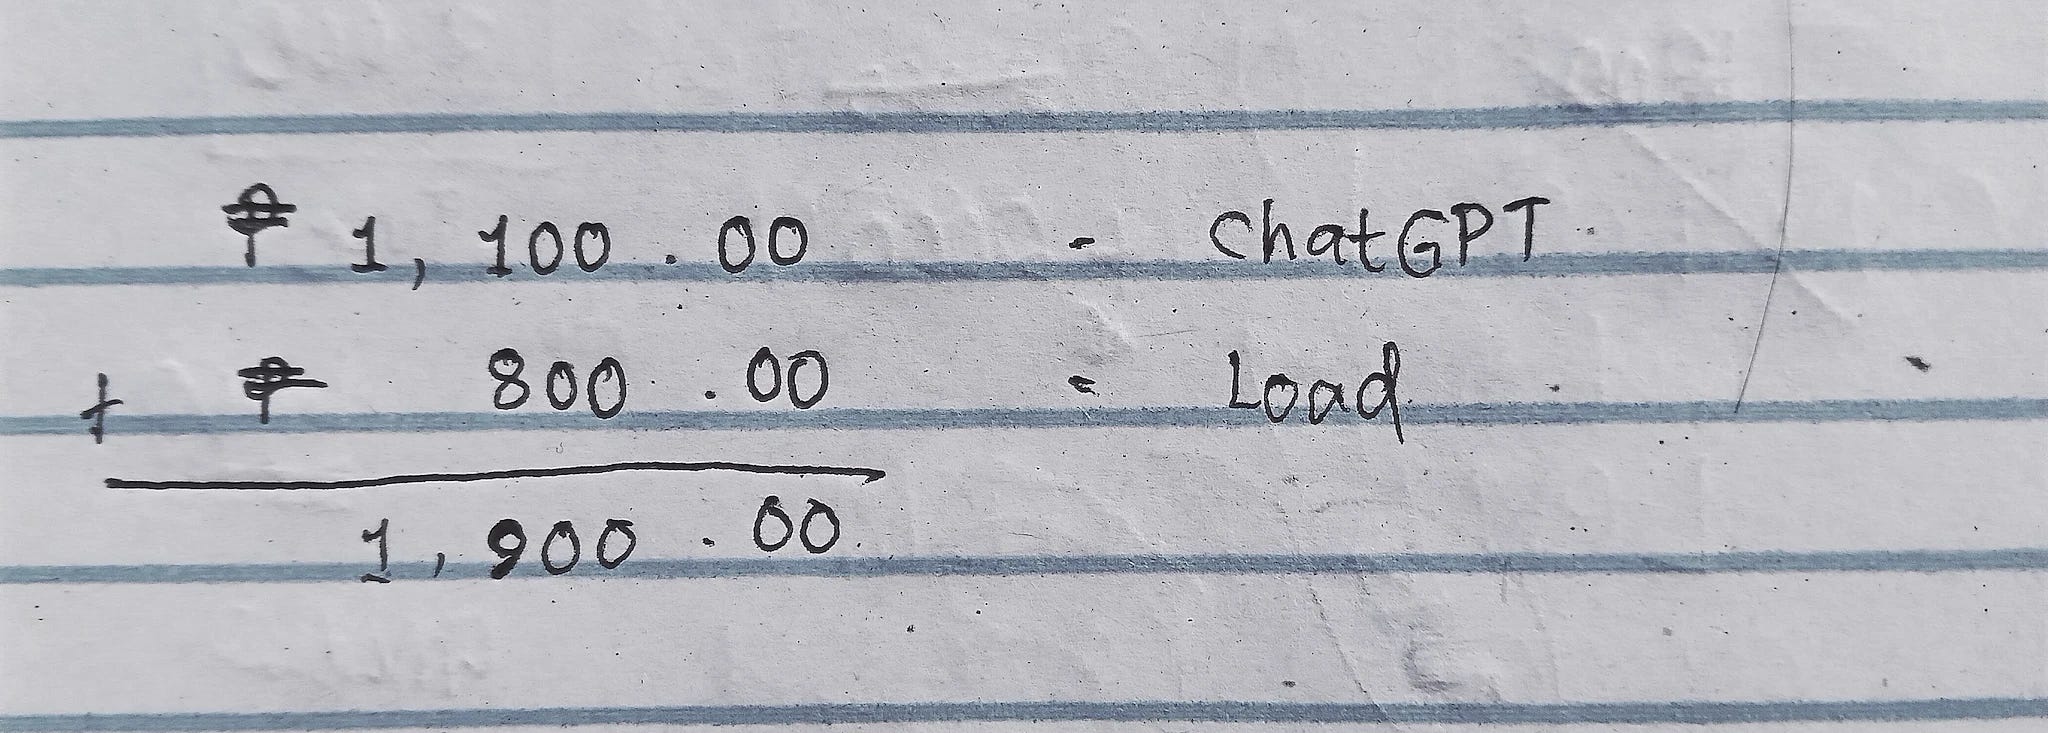 ₱ 1,100.00 - ChatGPT
+ ₱ 800.00 - Load
1,900.00